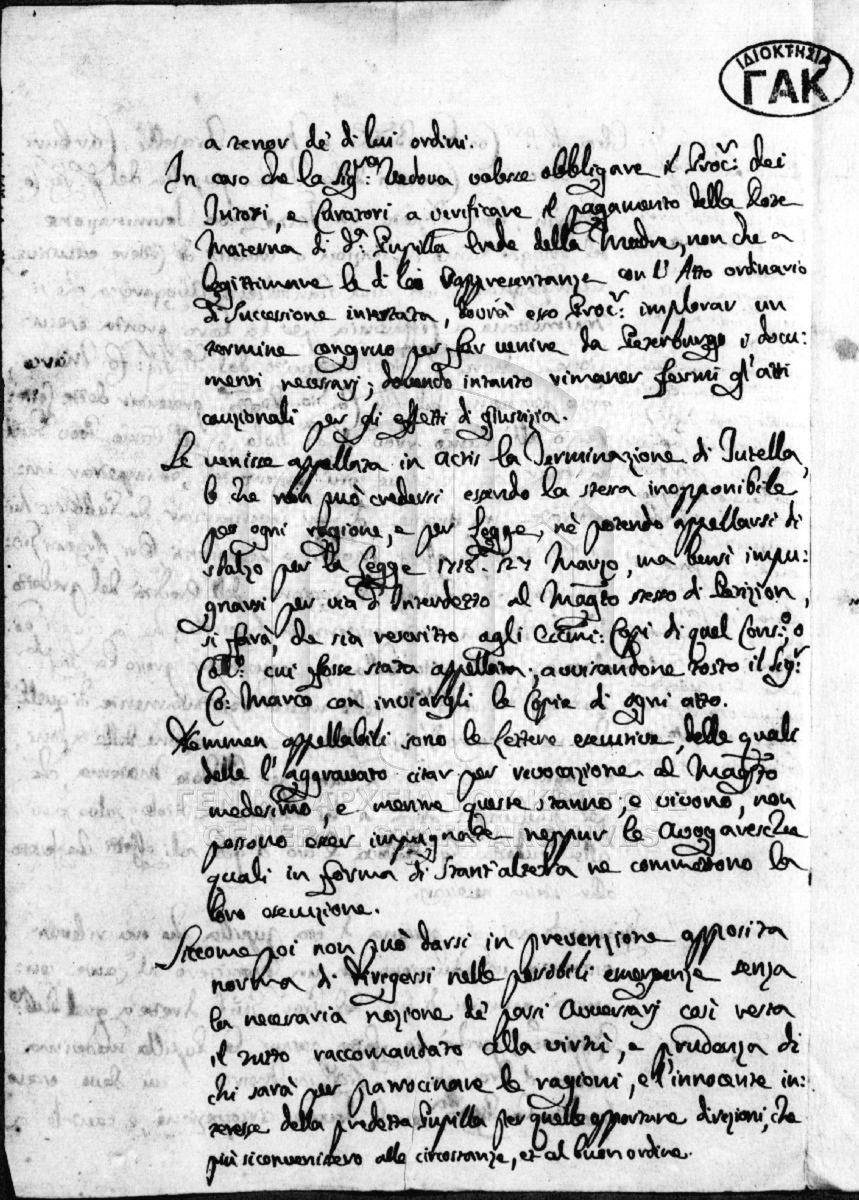 ΙΔΙΟΚΤΗΣΙΑ
ΓΑΚ
a tenor de' di lui ordini.
In caso che la Sig.ra Vedova volesse obbligare il Proc.r dei
Tutori, e Curatori a verificare il pagamento della Dote
Materna di d.a Pupilla Erede della Madre, non che a
legittimare le di lei Rappresentanze con l'Atto ordinario
di Successione intestata, dovrà esso Proc.r implorar un
termine congruo per far venire da Peterburgo i docu:
menti necessarj; dovendo intanto rimaner fermi gl'atti
cauzionali per gli effetti di giustizia.
Se venisse appellata in actis la Terminazione di Tutella,
lo che non può credersi essendo la stessa inopponibile
per ogni ragione, e per Legge, nè potendo appellarsi di
sbalzo per la Legge 1718. 27 Marzo, ma bensì impu:
gnarsi per via d'Interdetto al Mag.to stesso di Petizion,
si farà, che sia rescritto agli Eccmi: Capi di quel Cons:o, o
Coll:o cui fosse stata appellata, avvisandone tosto il Sig.r
Co: Marco con inviargli le Copie di ogni atto.
Nemmen appellabili sono le Lettere esecutive, delle quali
deve l'aggravato citar per revocazione al Mag.to
medesimo, e mentre queste stanno, e vivono, non
possono esser impugnate neppur le Avogaresche
quali in forma di Stant'altera ne commettono la
loro esecuzione.
Siccome poi non può darsi in prevenzione apposita
norma di dirigersi nelle possibili emergenze senza
la necessaria nozione de' passi Avversarj così resta
il tutto raccomandato alla virtù, e prudenza di
chi sarà per patrocinare le ragioni, e l'innocente in:
teresse della predetta Pupilla per quelle opportune direzioni, che
più si converissero alle circostanze, et al buon ordine.